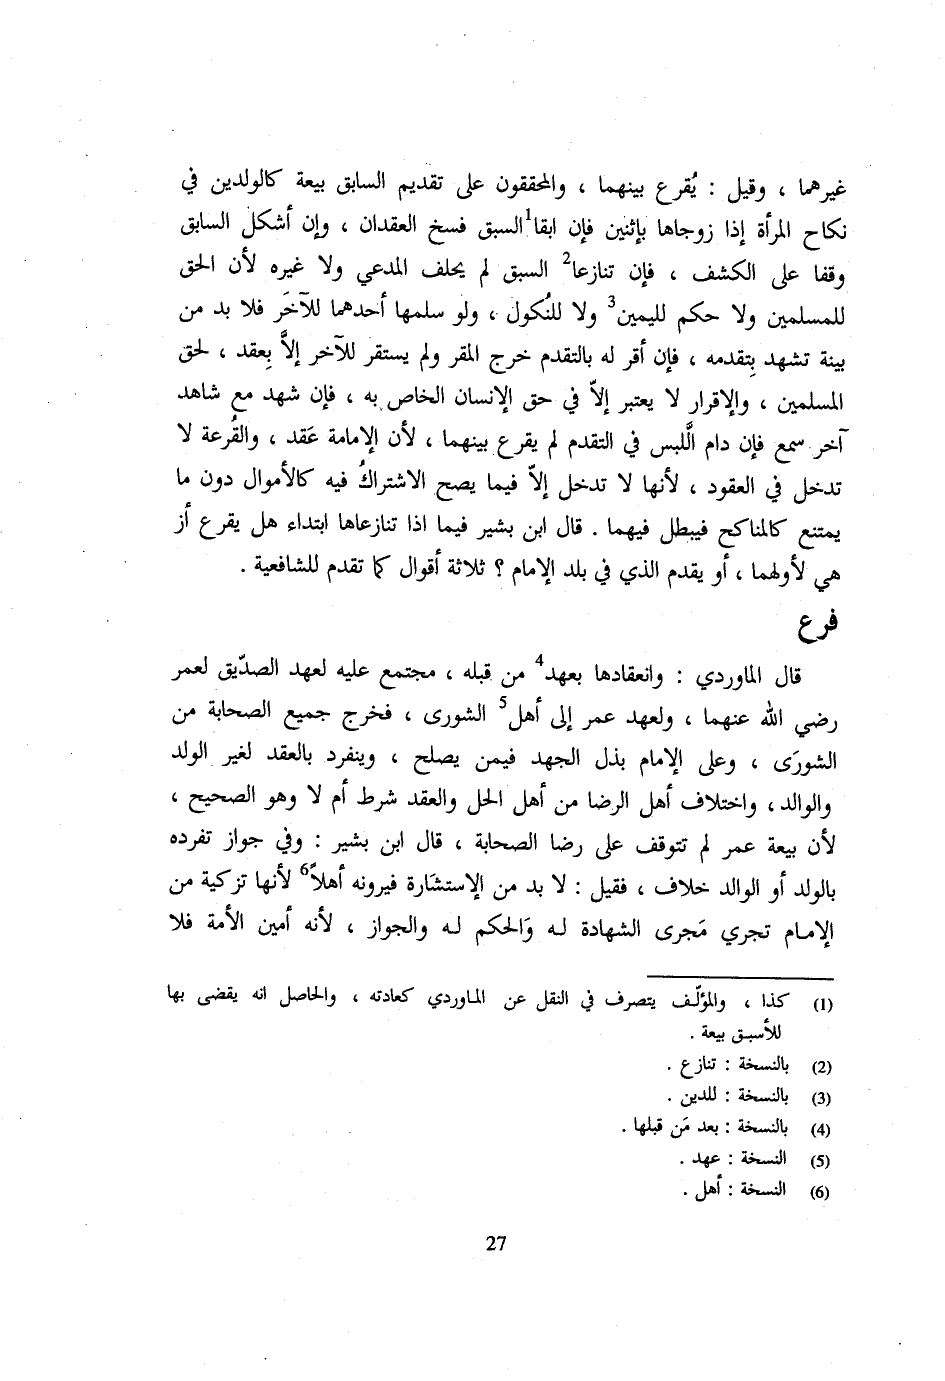 غيرهما ، وقيل : يُقرع بينهما ، والمحققون على تقديم السابق بيعة كالولدين في
نكاح المرأة إذا زوجاها بإثنين فإن ابقا1 السبق فسخ العقدان ، وإن أشكل السابق
وقفا على الكشف ، فإن تنازعا2 السبق لم يحلف المدعي ولا غيره لأن الحق
للمسلمين ولا حكم لليمين3 ولا للنُكول ، ولو سلمها أحدهما للآخَر فلا بد من
بينة تشهد بِتقدمه ، فإن أقر له بالتقدم خرج المقر ولم يستقر للآخر إلاَّ بِعقد ، لحق
المسلمين ، والإقرار لا يعتبر إلاّ في حق الإنسان الخاص به ، فإن شهد مع شاهد
آخر سمع فإن دام اللَّبس في التقدم لم يقرع بينهما ، لأن الإمامة عَقد ، والقُرعة لا
تدخل في العقود ، لأنها لا تدخل إلاّ فيما يصح الاشتراكُ فيه كالأموال دون ما
يمتنع كالمناكح فيبطل فيهما . قال ابن بشير فيما اذا تنازعاها ابتداء هل يقرع أز
هي لأولهما ، أو يقدم الذي في بلد الإمام ؟ ثلاثة أقوال كما تقدم للشافعية .
فرع
قال الماوردي : وانعقادها بعهد4 من قبله ، مجتمع عليه لعهد الصدّيق لعمر
رضي الله عنهما ، ولعهد عمر إلى أهل5 الشورى ، فخرج جميع الصحابة من
الشورَى ، وعلى الإمام بذل الجهد فيمن يصلح ، وينفرد بالعقد لغير الولد
والوالد ، واختلاف أهل الرضا من أهل الحل والعقد شرط أم لا وهو الصحيح ،
لأن بيعة عمر لم تتوقف على رضا الصحابة ، قال ابن بشير : وفي جواز تفرده
بالولد أو الوالد خلاف ، فقيل : لا بد من الإستشَارة فيرونه أهلاً6 لأنها تزكية من
الإمام تجري مَجرى الشهادة له وَالحكم له والجواز ، لأنه أمين الأمة فلا
(1) كذا ، والمؤلّف يتصرف في النقل عن الماوردي كعادته ، والحاصل انه يقضى بها
للأسبق بيعة .
(2) بالنسخة : تنازع .
(3) بالنسخة : للدين .
(4) بالنسخة : بعد مَن قبلها .
(5) النسخة : عهد .
(6) النسخة : أهل .
27